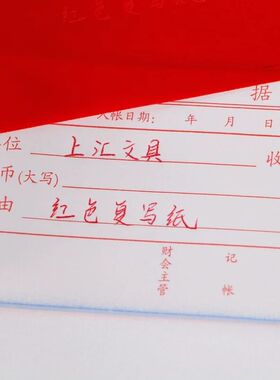 红色复写纸
据
入帐日期： 年 月 日
位 上汇文具 收
币(大写)
由 红色复写纸
财会主管 记帐